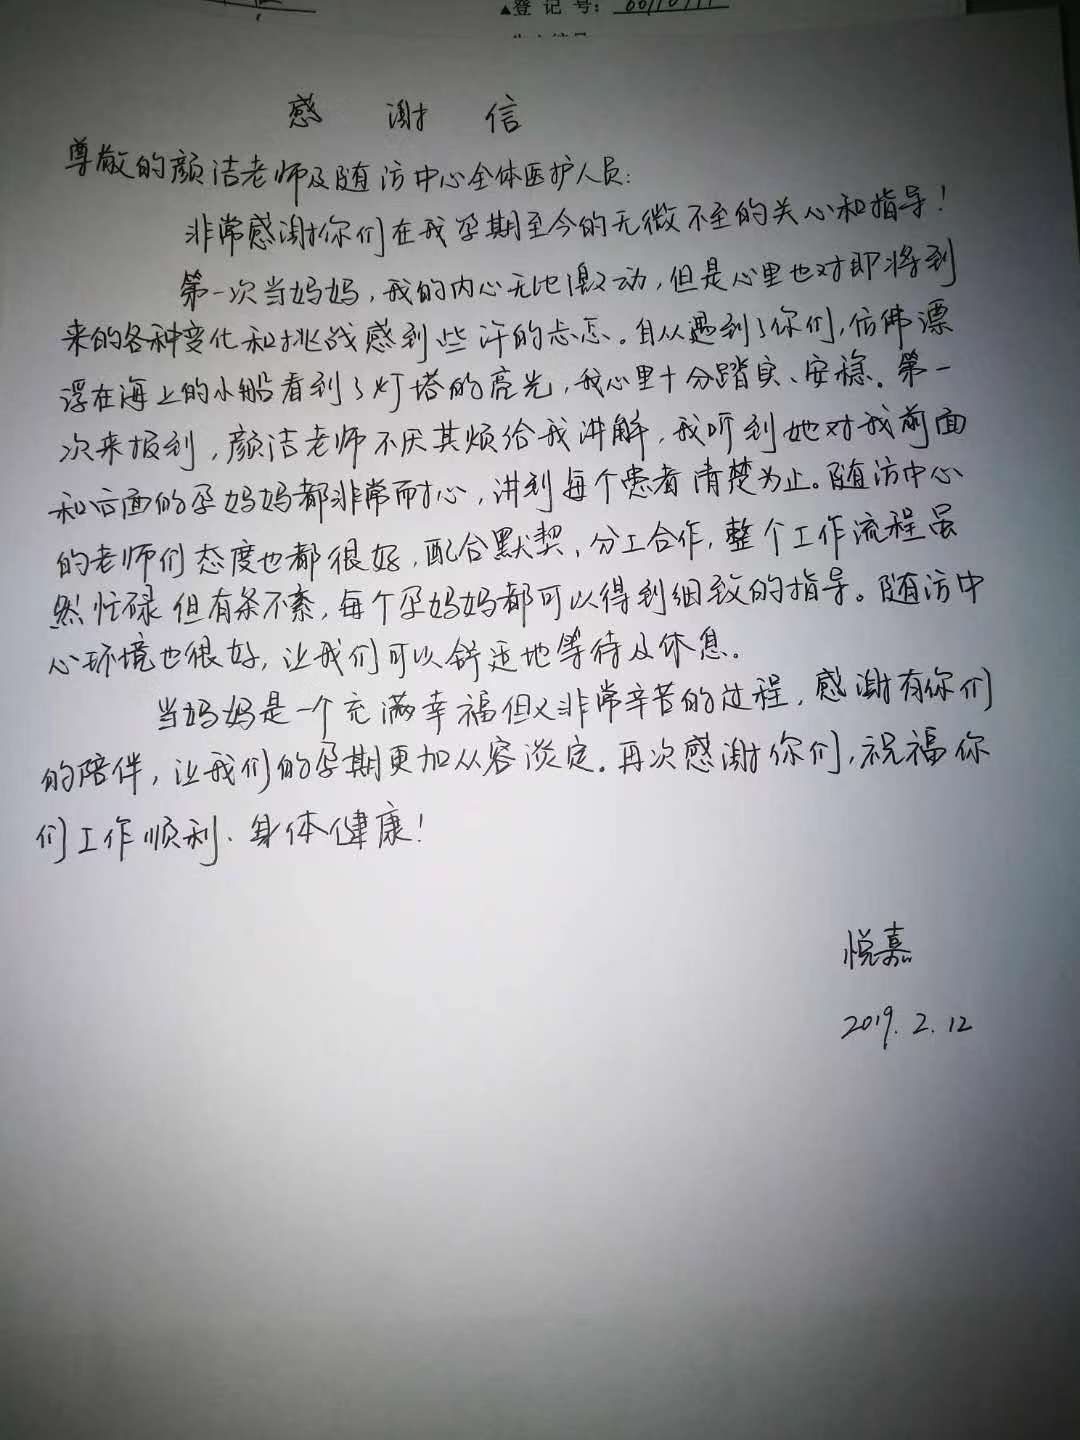 ▲登 记 号:
感 谢 信
尊敬的颜洁老师及随访中心全体医护人员:
非常感谢你们在我孕期至今的无微不至的关心和指导!
第一次当妈妈,我的内心无比激动,但是心里也对即将到
来的各种变化和挑战感到些许的忐忑。自从遇到了你们,仿佛漂
浮在海上的小船看到了灯塔的亮光,我心里十分踏实、安稳。第一
次来报到,颜洁老师不厌其烦给我讲解,我听到她对我前面
和后面的孕妈妈都非常耐心,讲到每个患者清楚为止。随访中心
的老师们态度也都很好,配合默契、分工合作,整个工作流程虽
然忙碌但有条不紊,每个孕妈妈都可以得到细致的指导。随访中
心环境也很好,让我们可以舒适地等待及休息。
当妈妈是一个充满幸福但又非常辛苦的过程,感谢有你们
的陪伴,让我们的孕期更加从容淡定。再次感谢你们,祝福你
们工作顺利、身体健康!
悦嘉
2019.2.12